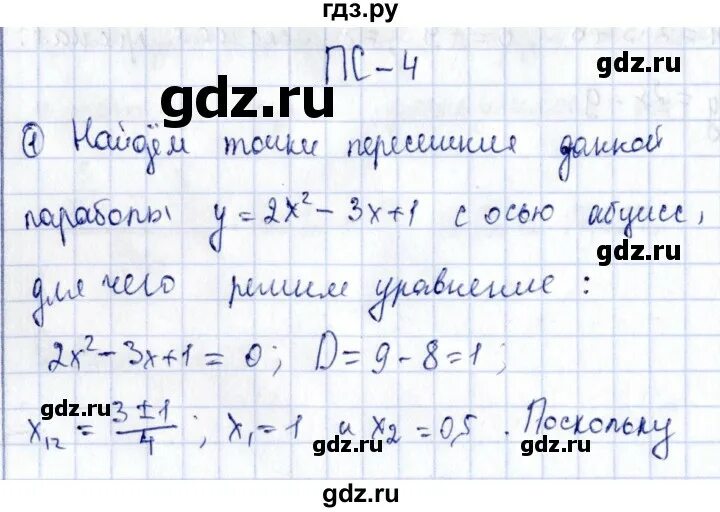 гдз.ру
ПС-4
gdz.ru
① Найдём точки пересечения данной
gdz.ru
параболы y = 2x² - 3x + 1 с осью абсцисс,
gdz.ru
для чего решим уравнение:
2x² - 3x + 1 = 0; D = 9 - 8 = 1;
gdz.ru
x₁₂ = (3 ± 1)/4; x₁ = 1 и x₂ = 0,5. Поскольку
gdz.ru
gdz.ru
gdz.ru